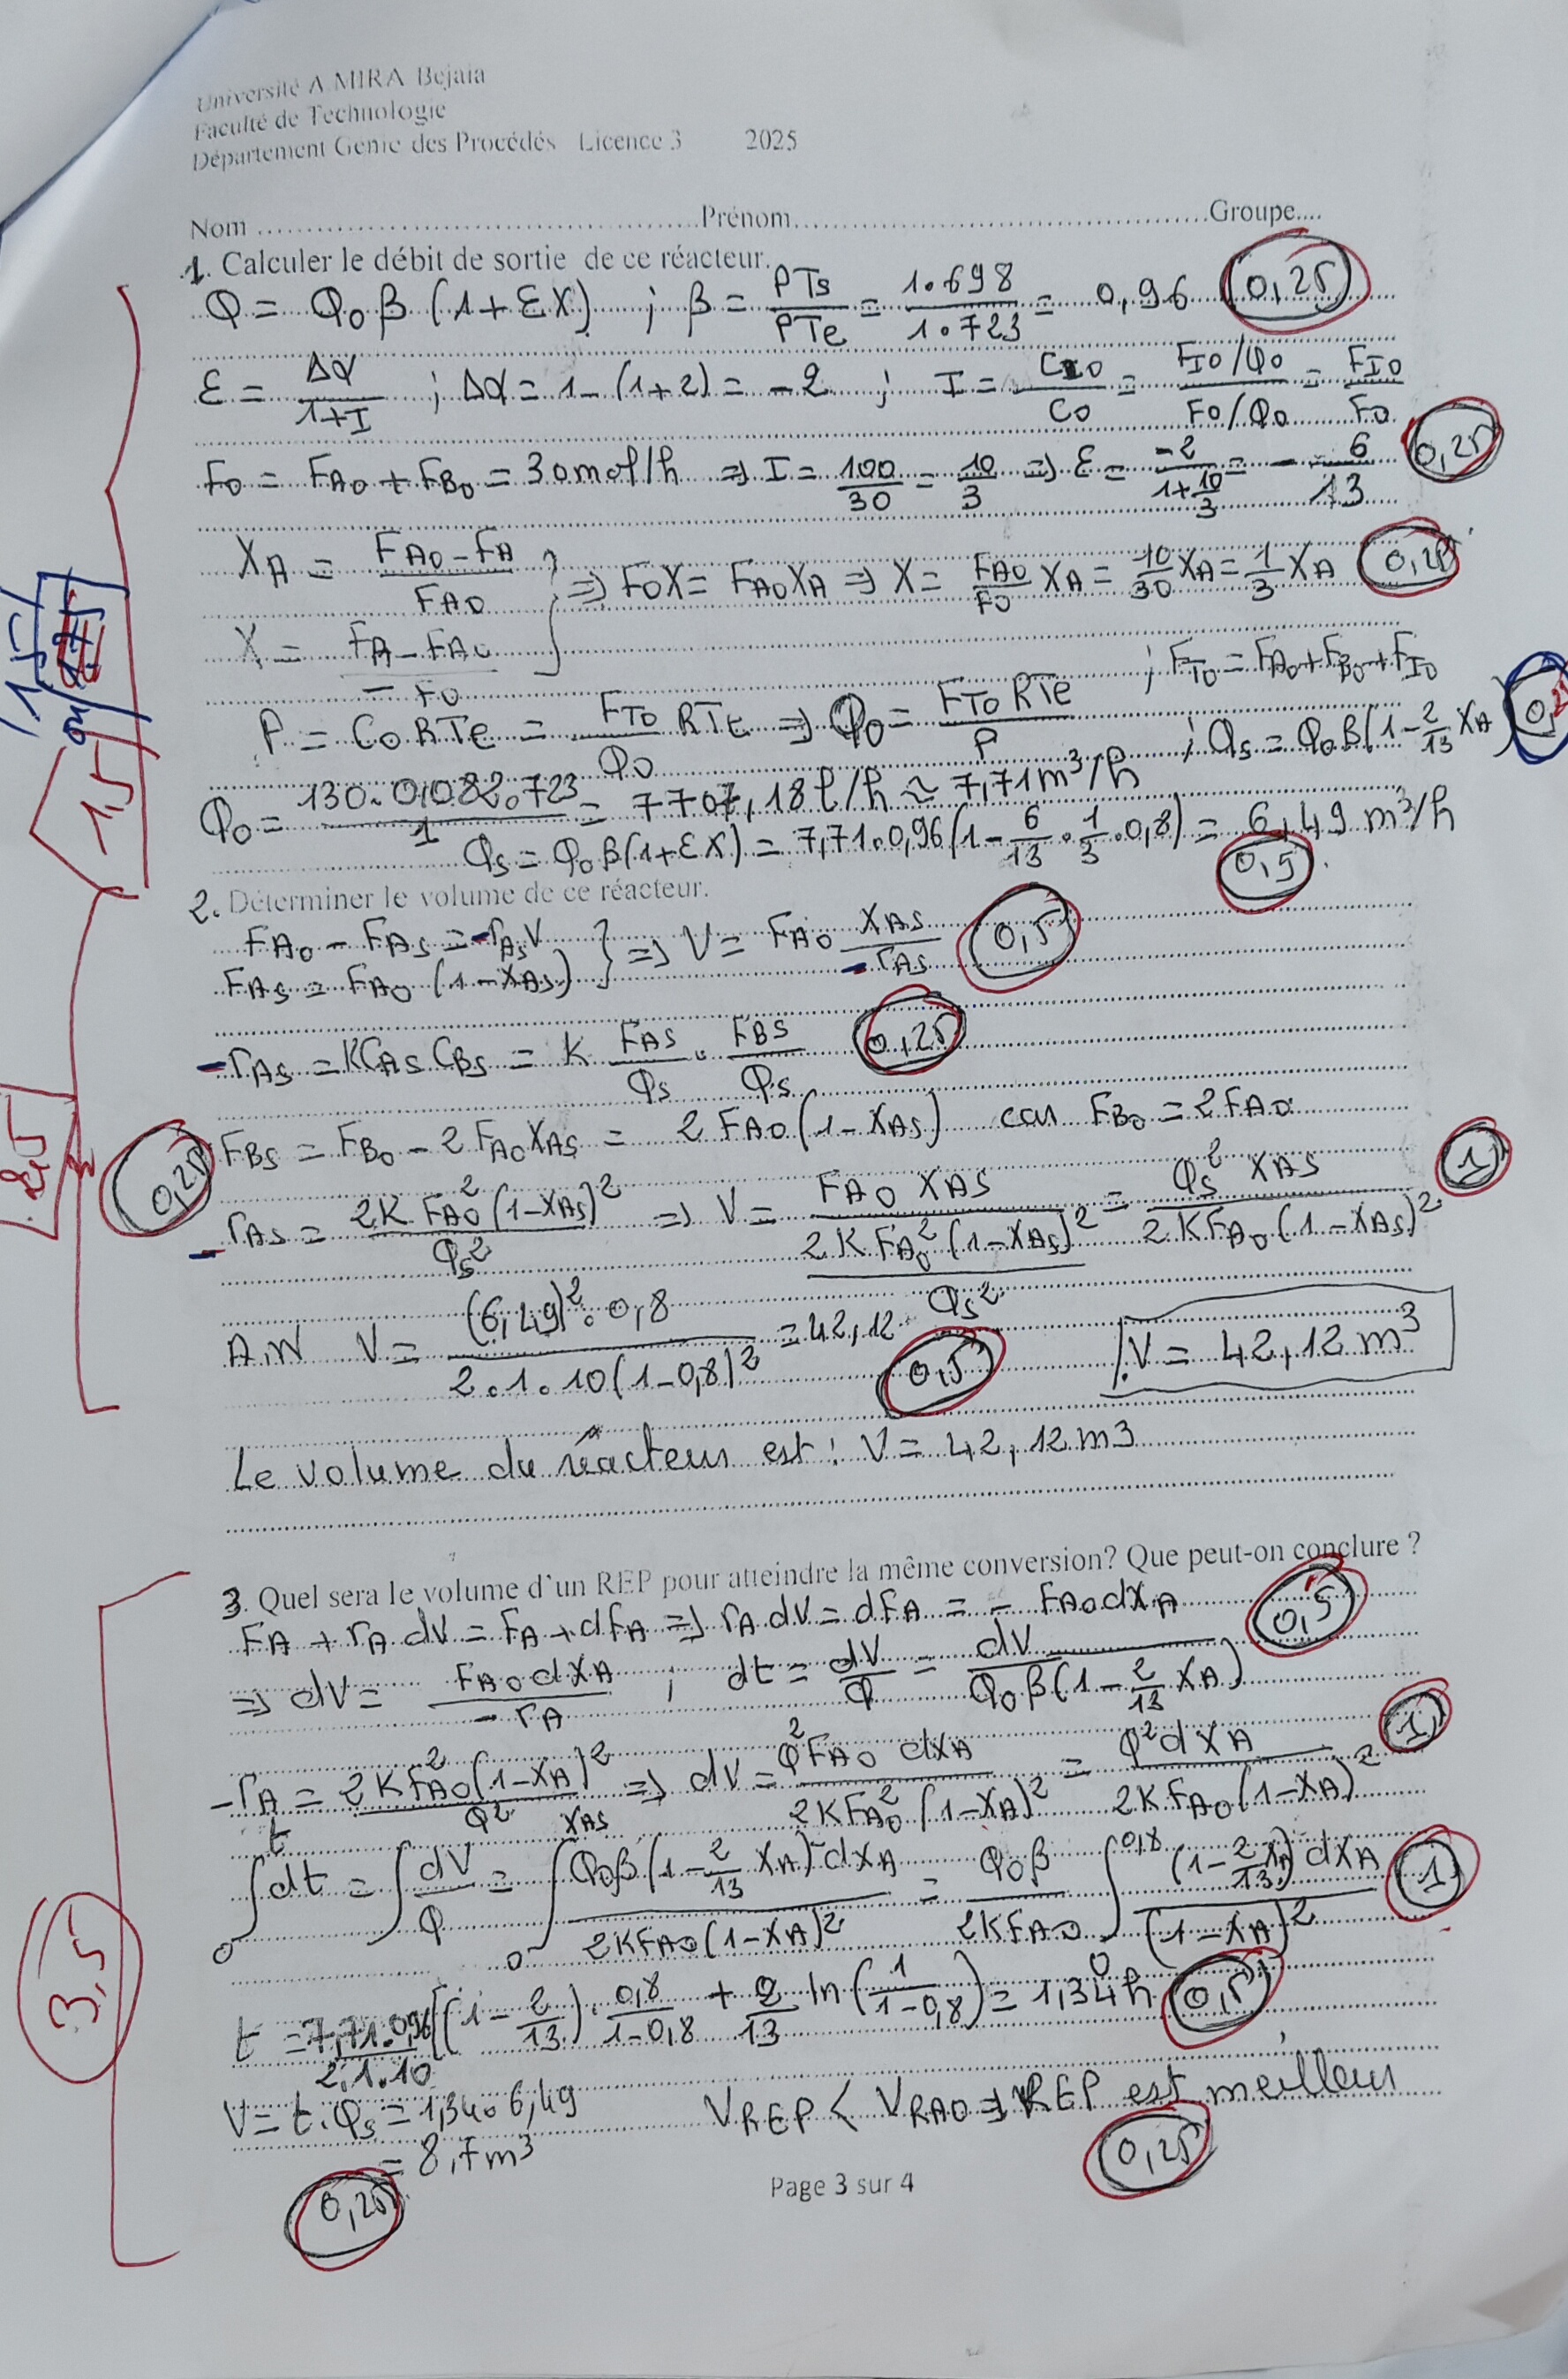 Université A.MIRA Bejaia
Faculté de Technologie
Département Genie des Procédés Licence 3 2025
Nom ............ Prénom............ Groupe....
1. Calculer le débit de sortie de ce réacteur.
φ = φ0 β (1 + εX) ; β = PTs/PTe = 1.698/1.723 = 0,96 0,25
ε = Δα/(1+I) ; Δα = 1 - (1+2) = -2 ; I = CI0/C0 = (FI0/φ0)/(F0/φ0) = FI0/F0
F0 = FA0 + FB0 = 30 mol/h => I = 100/30 = 10/3 => ε = -2/(1+10/3) = -6/13 0,25
XA = (FA0 - FA)/FA0 } => F0X = FA0XA => X = FA0/F0 XA = 10/30 XA = 1/3 XA 0,25
X = (FA - FA0)/(-F0)
; FT0 = FA0 + FB0 + FI0
P = C0RTe = FT0/φ0 RTe => φ0 = FT0 RTe/P ; φs = φ0β(1 - 2/13 XA)
φ0 = 130.0,082.723/1 = 7707,18 l/h ≈ 7,71 m³/h
φs = φ0β(1+εX) = 7,71.0,96(1 - 6/13 . 1/3 . 0,8) = 6,49 m³/h
0,5
1,5
2. Déterminer le volume de ce réacteur.
FA0 - FAs = -rAs V } => V = FA0 XAs/-rAs 0,5
FAs = FA0 (1 - XAs)
-rAs = KCAs CBs = K FAs/φs . FBs/φs 0,25
0,25 FBs = FB0 - 2FA0XAs = 2FA0(1 - XAs) car FB0 = 2FA0
-rAs = 2K FA0²(1-XAs)²/φs² => V = FA0 XAs/(2K FA0²(1-XAs)²/φs²) = φs² XAs/(2KFA0(1-XAs)²) 1
A.N V = (6,49)².0,8/(2.1.10(1-0,8)²) = 42,12 0,5 V = 42,12 m³
2,5
Le volume du réacteur est : V = 42,12 m3
3. Quel sera le volume d'un REP pour atteindre la même conversion? Que peut-on conclure ?
FA + rA dV = FA + dFA => rA dV = dFA = - FA0dXA 0,5
=> dV = FA0 dXA/-rA ; dt = dV/φ = dV/(φ0β(1 - 2/13 XA))
-rA = 2KFA0²(1-XA)²/φ² => dV = φ²FA0 dXA/(2KFA0²(1-XA)²) = φ²dXA/(2KFA0(1-XA)²) 1
∫0^t dt = ∫ dV/φ = ∫0^XAs φ0β(1 - 2/13 XA)dXA/(2KFA0(1-XA)²) = φ0β/(2KFA0) ∫0^0,8 (1 - 2/13 XA)dXA/(1-XA)² 1
t = 7,71.0,96/2.1.10 [(1 - 2/13).0,8/(1-0,8) + 2/13 ln(1/(1-0,8)) = 1,34h 0,5
V = t.φs = 1,34.6,49 VREP < VRAO => REP est meilleur
= 8,7m³ 0,25
0,25
3,5
Page 3 sur 4